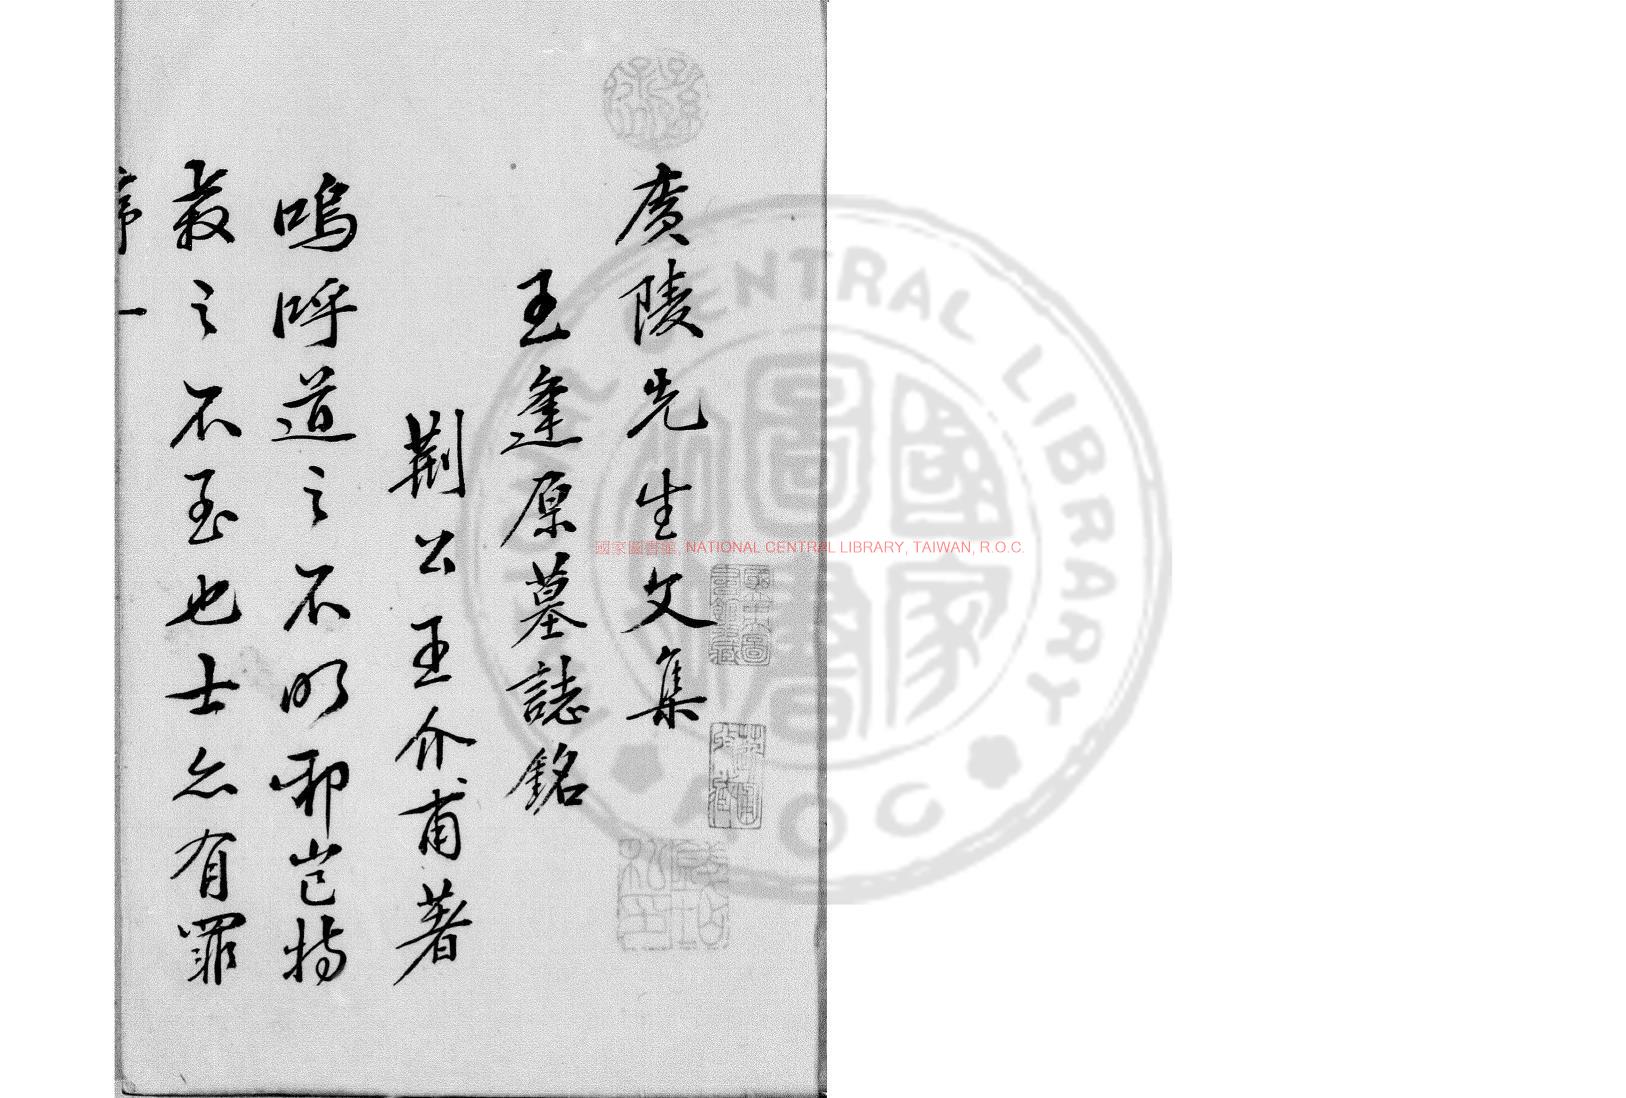 廣陵先生文集
王逢原墓誌銘
荆公王介甫著
嗚呼道之不明邪豈特
教之不至也士亦有罪
序 一
國家圖書館, NATIONAL CENTRAL LIBRARY, TAIWAN, R.O.C.
國家圖書館
NATIONAL CENTRAL LIBRARY
ROC